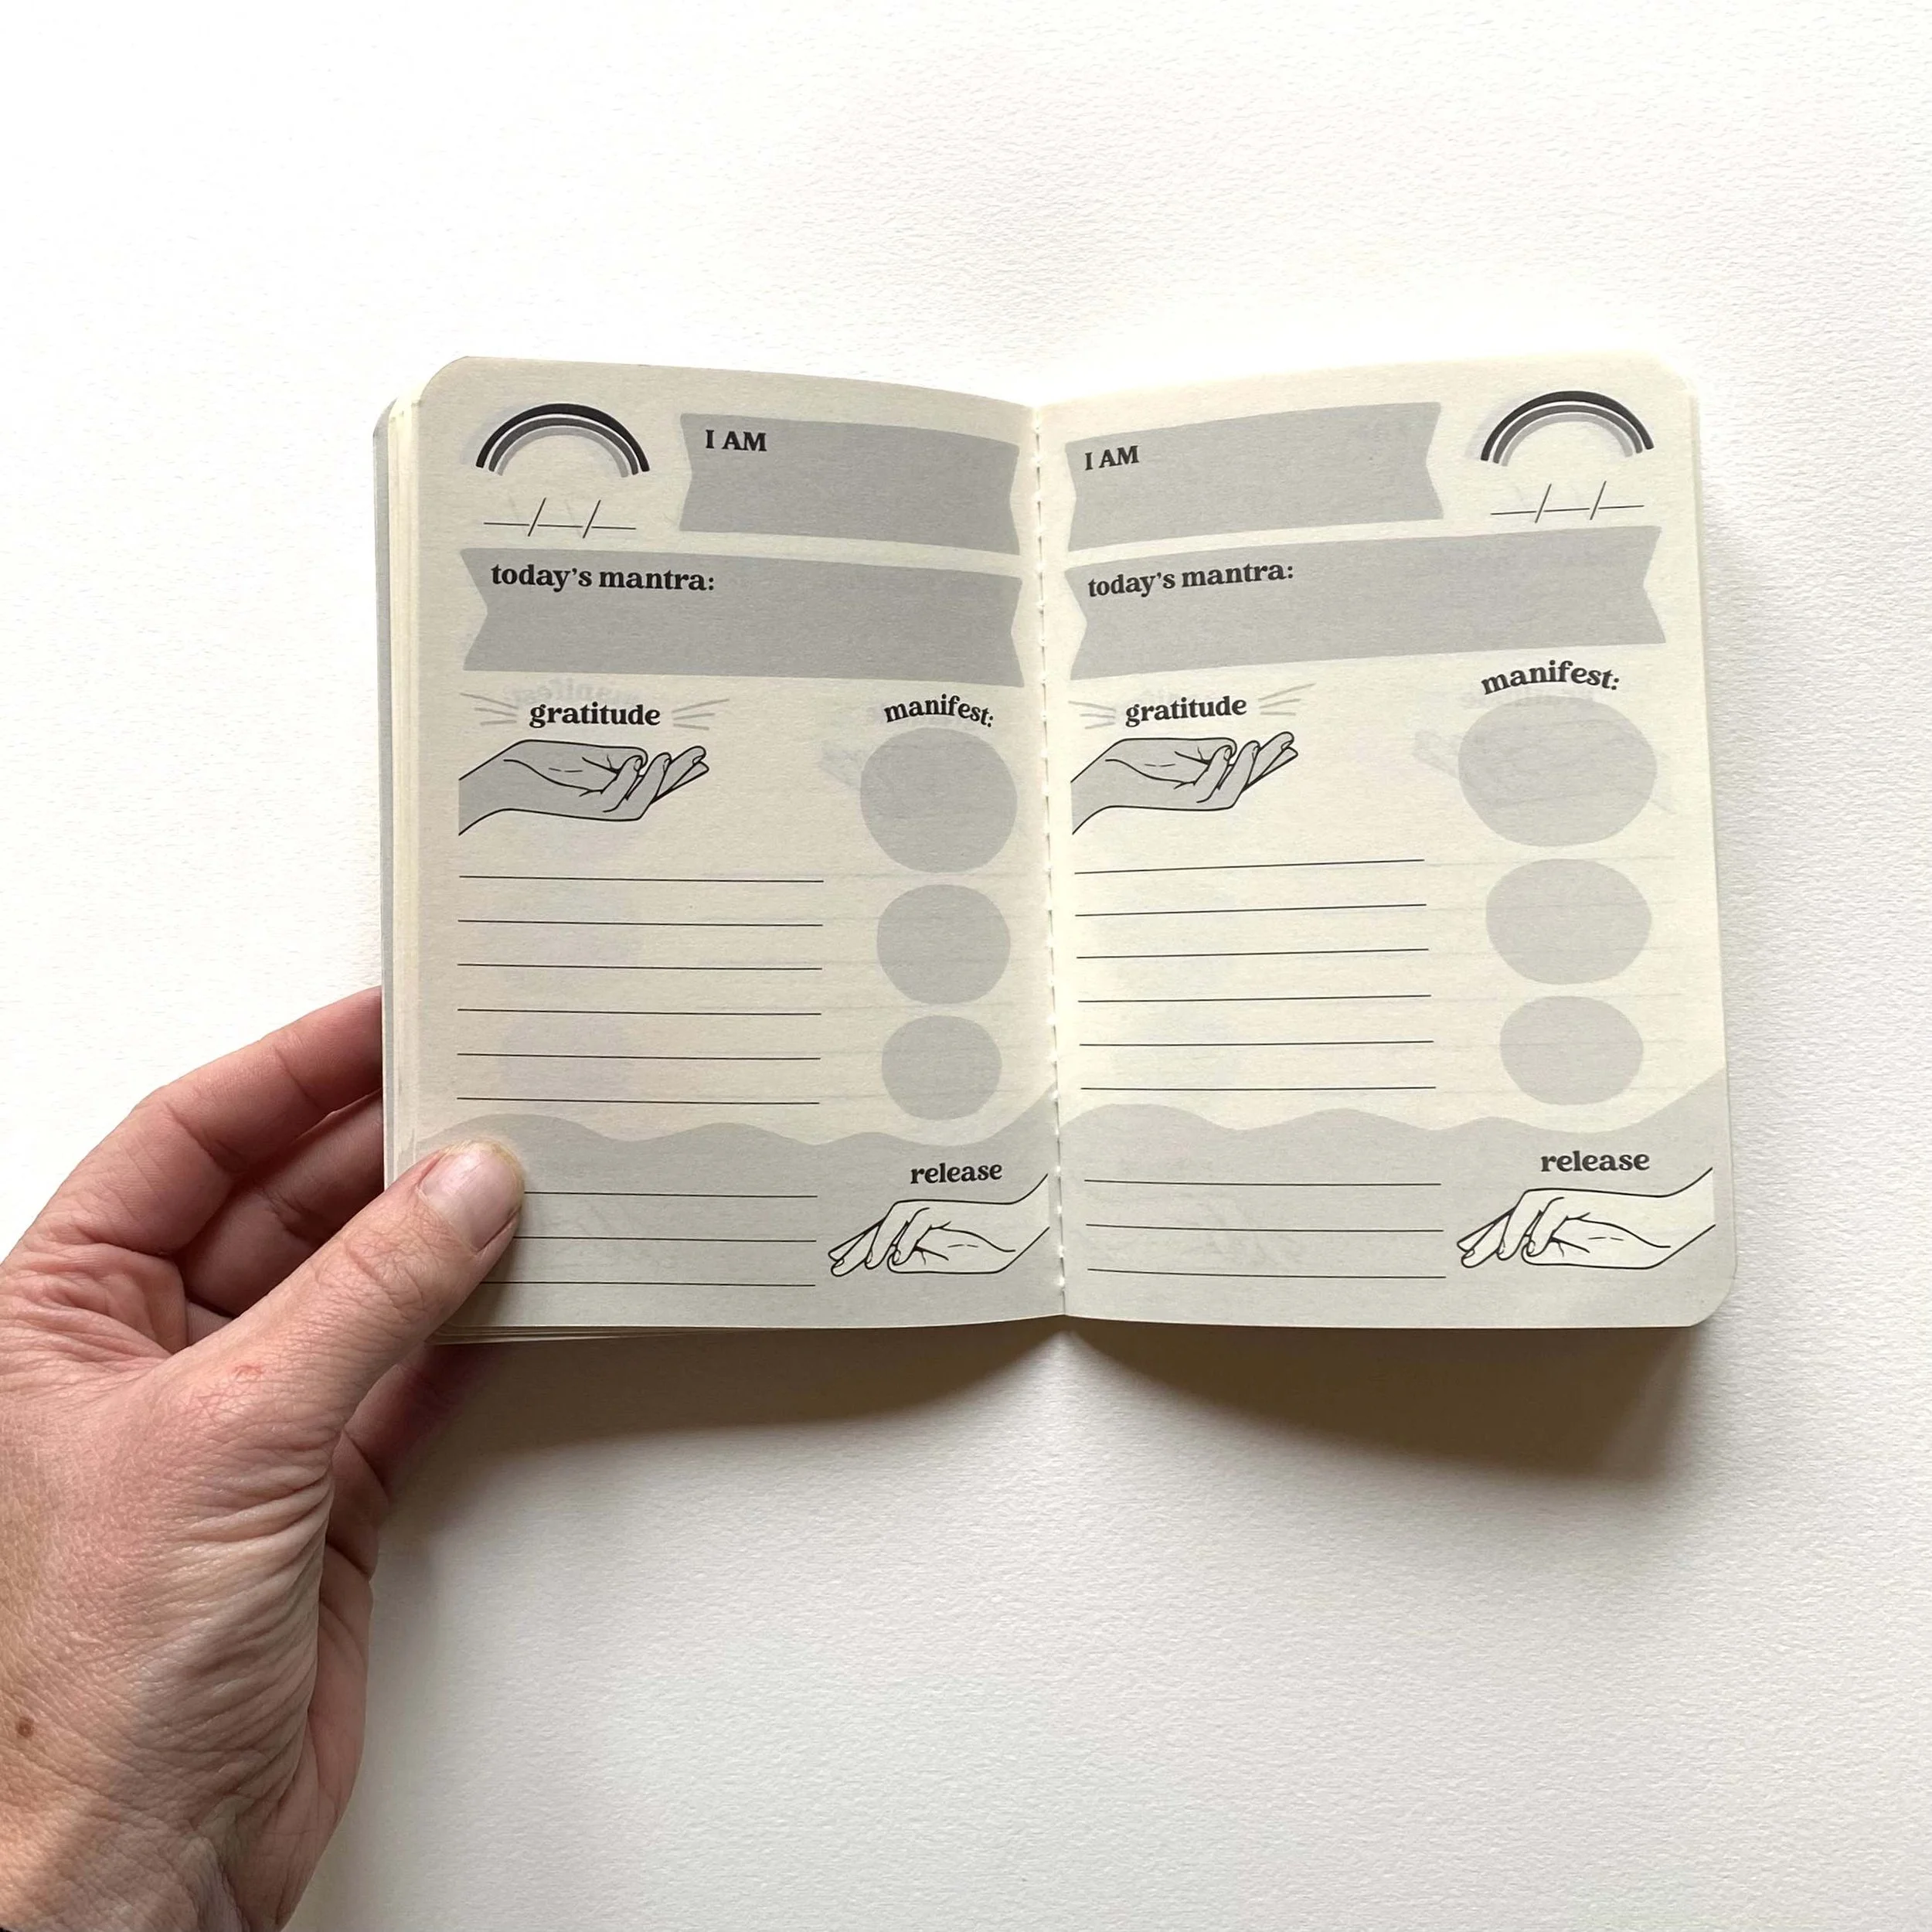 I AM
__/__/__
today's mantra:
gratitude
manifest:
release
I AM
__/__/__
today's mantra:
gratitude
manifest:
release